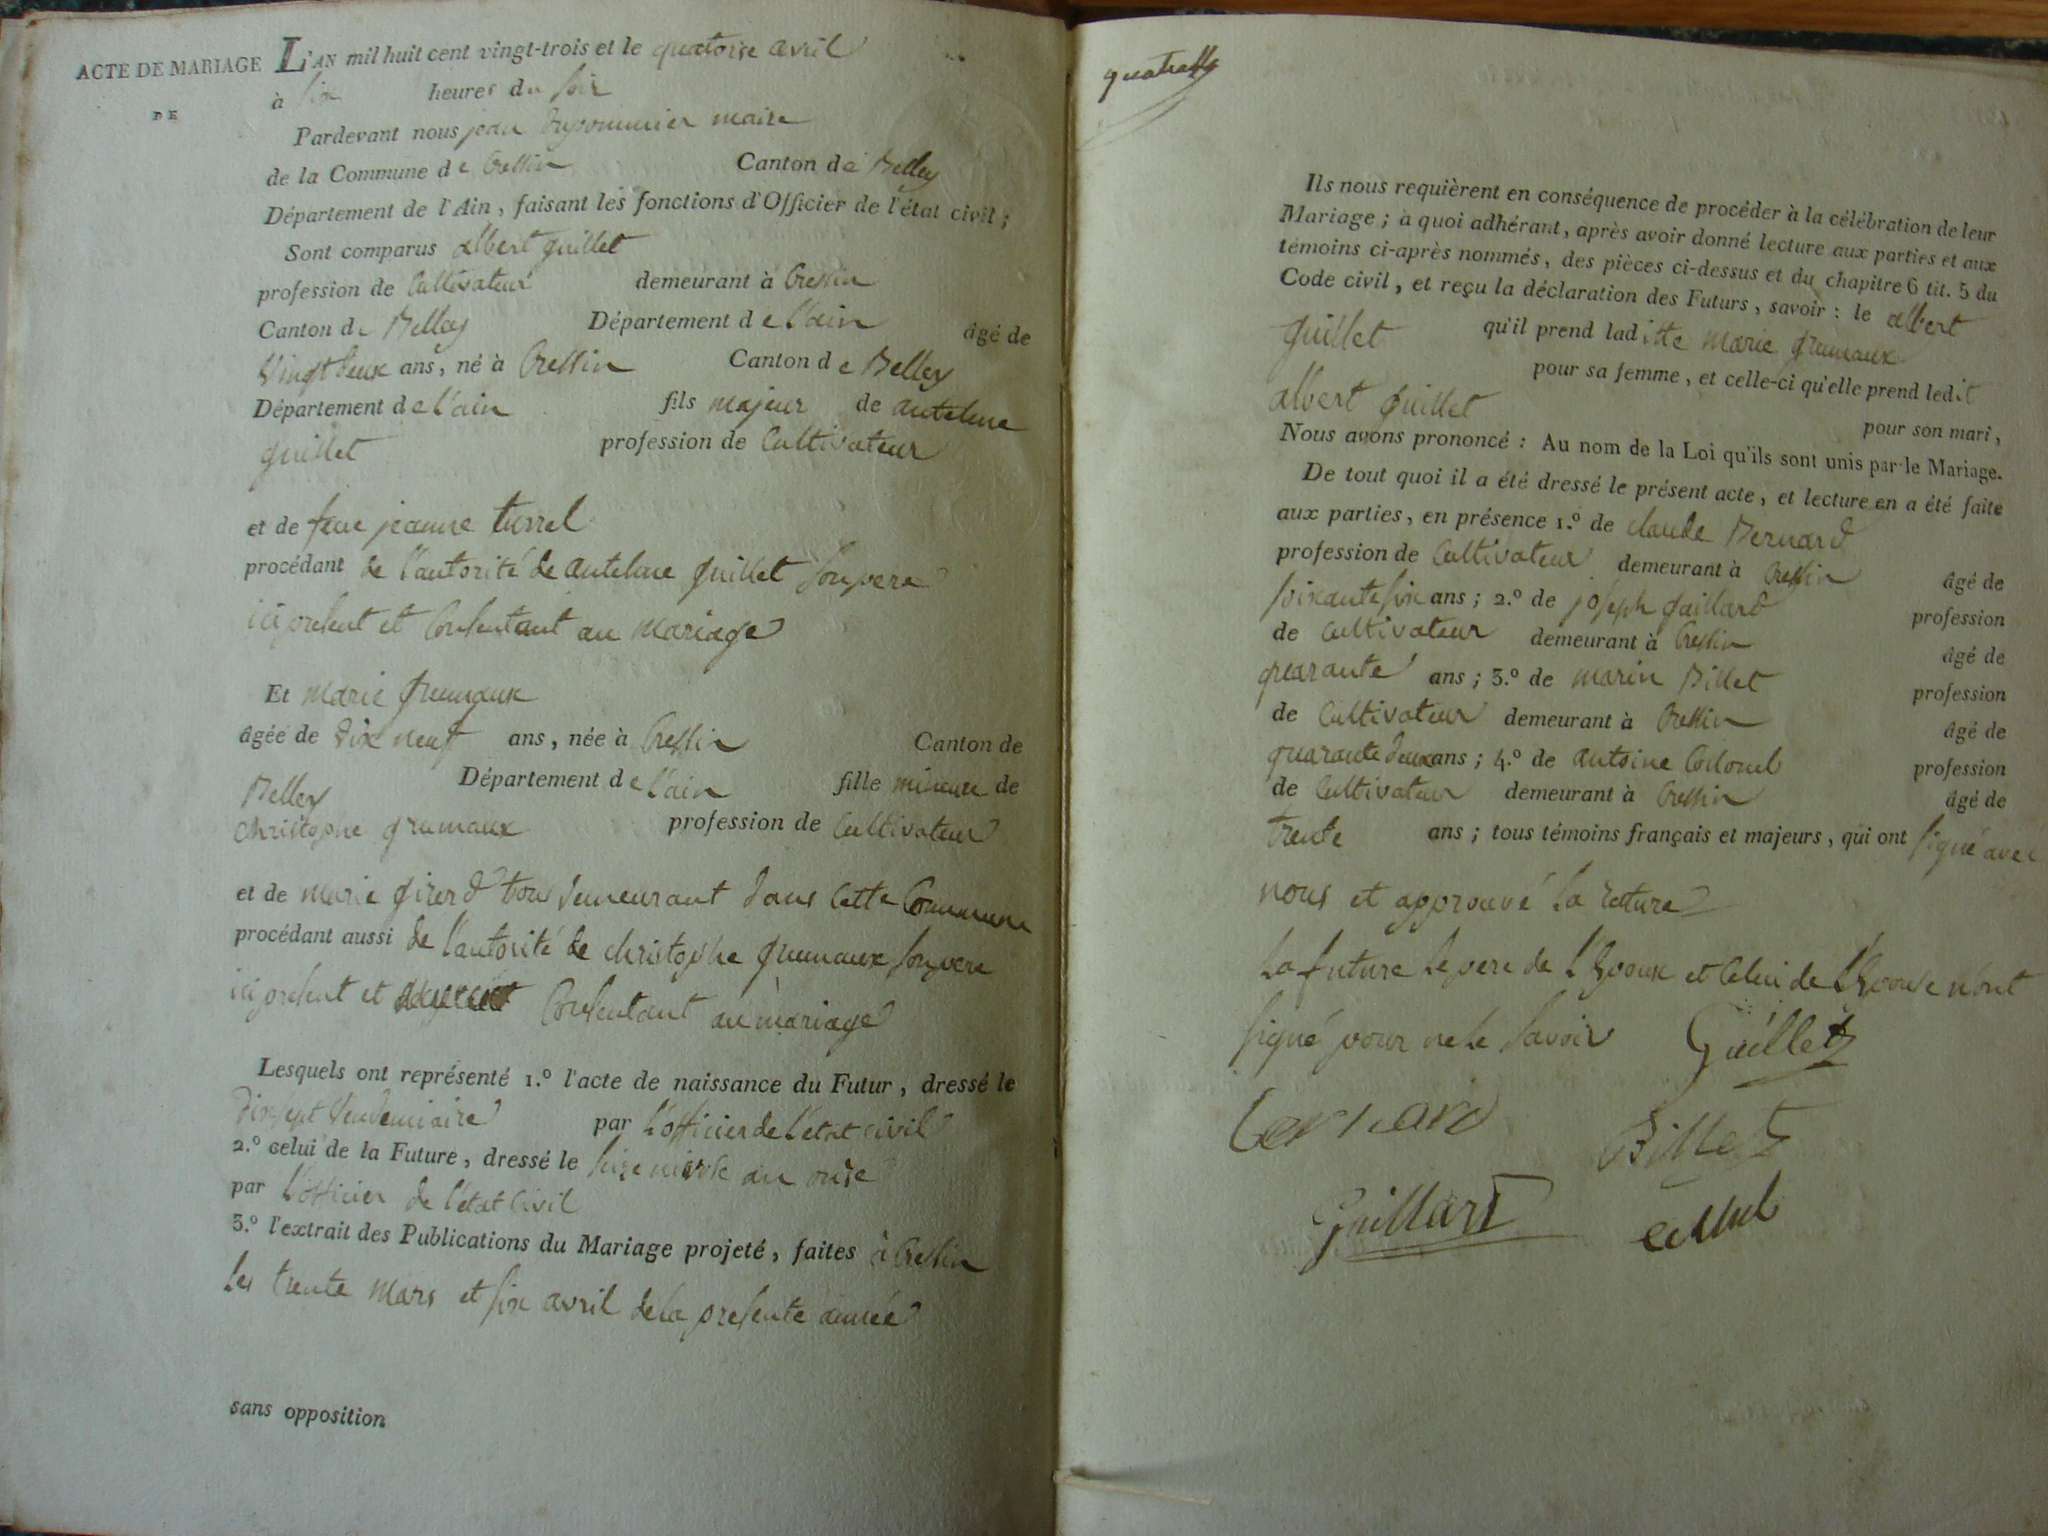 ACTE DE MARIAGE L'AN mil huit cent vingt-trois et le quatorze avril
DE
à six heures du soir
Pardevant nous jean maire
de la Commune de Cressin Canton de Belley
Département de l'Ain, faisant les fonctions d'Officier de l'état civil;
Sont comparus albert guillet
profession de Cultivateur demeurant à Cressin
Canton de Belley Département de l'ain âgé de
vingt deux ans, né à Cressin Canton de Belley
Département de l'ain fils majeur de antelme
guillet profession de Cultivateur
et de feue jeanne turrel
procédant de l'autorité de antelme guillet son pere
ici present et Consentant au mariage
Et marie grumaux
âgée de dix neuf ans, née à Cressin Canton de
Belley Département de l'ain fille mineure de
christophe grumaux profession de Cultivateur
et de marie girerd tous demeurant dans cette Commune
procédant aussi de l'autorité de christophe grumaux son pere
ici present et Consentant au mariage
Lesquels ont représenté 1.º l'acte de naissance du Futur, dressé le
dix sept vendemiaire par l'officier de l'etat civil
2.º celui de la Future, dressé le seize nivose an onze
par l'officier de l'etat civil
3.º l'extrait des Publications du Mariage projeté, faites à Cressin
les trente mars et six avril de la presente année
sans opposition
Ils nous requièrent en conséquence de procéder à la célébration de leur
Mariage; à quoi adhérant, après avoir donné lecture aux parties et aux
témoins ci-après nommés, des pièces ci-dessus et du chapitre 6 tit. 5 du
Code civil, et reçu la déclaration des Futurs, savoir: le albert
guillet qu'il prend laditte marie grumaux
pour sa femme, et celle-ci qu'elle prend ledit
albert guillet pour son mari,
Nous avons prononcé: Au nom de la Loi qu'ils sont unis par le Mariage.
De tout quoi il a été dressé le présent acte, et lecture en a été faite
aux parties, en présence 1.º de claude Bernard
profession de Cultivateur demeurant à Cressin âgé de
soixante six ans; 2.º de joseph gaillard profession
de Cultivateur demeurant à Cressin âgé de
quarante ans; 3.º de marin Billet profession
de Cultivateur demeurant à Cressin âgé de
quarante deux ans; 4.º de antoine profession
de Cultivateur demeurant à Cressin âgé de
trente ans; tous témoins français et majeurs, qui ont signé avec
nous et approuvé la rature
La future le pere de l'Epoux et celui de l'Epouse n'ont
signé pour ne le savoir Guillet
bernard Billet